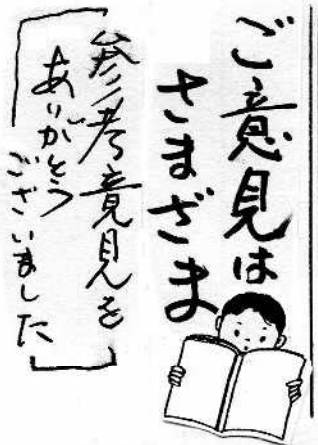 ご意見は
さまざま
参考意見を
ありがとう
ございました